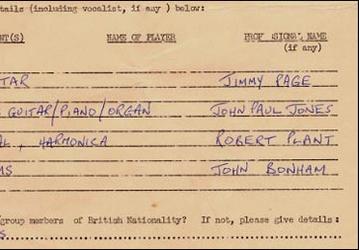 tails (including vocalist, if any ) below:
NT(S) NAME OF PLAYER PROF SIGNAL NAME
(if any)
TAR JIMMY PAGE
GUITAR/PIANO/ORGAN JOHN PAUL JONES
AL, HARMONICA ROBERT PLANT
MS JOHN BONHAM
group members of British Nationality? If not, please give details:
S